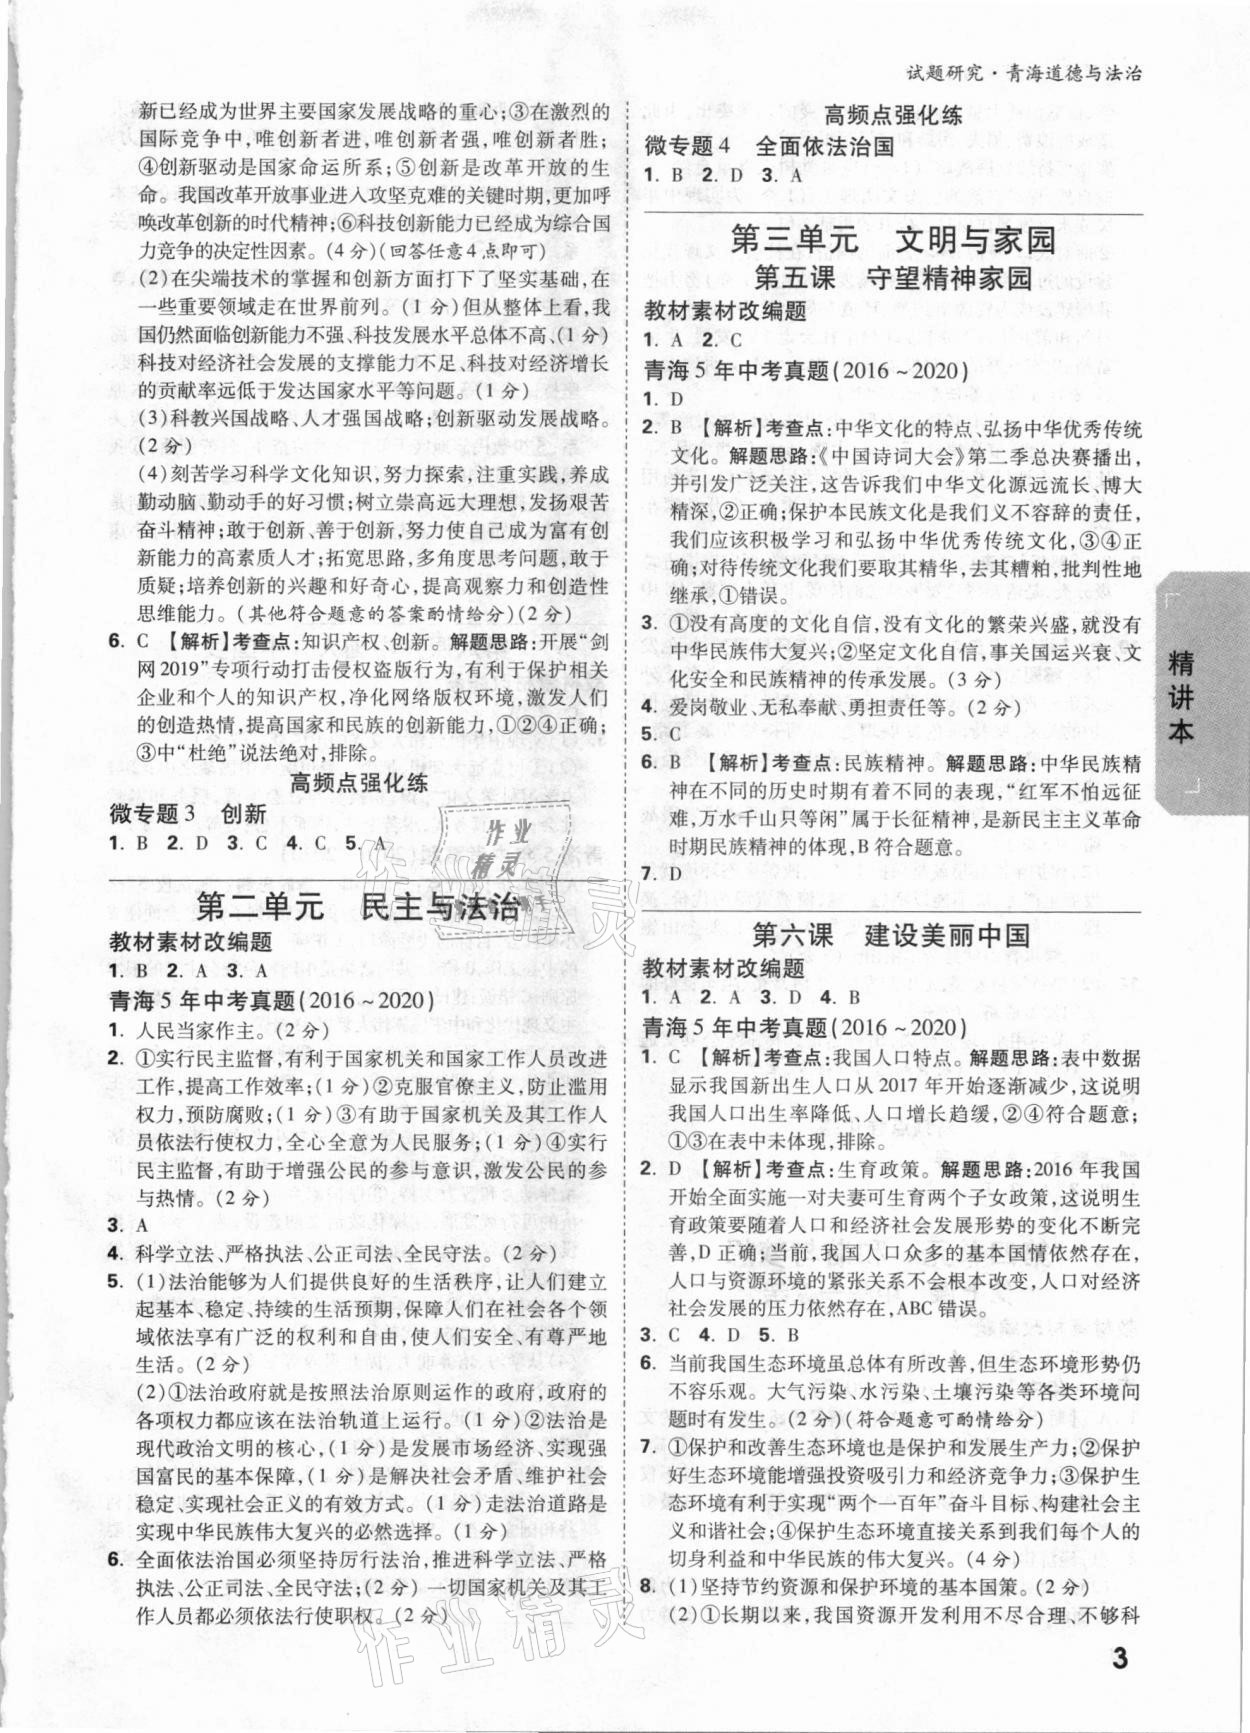 试题研究·青海道德与法治
新已经成为世界主要国家发展战略的重心;③在激烈的
国际竞争中,唯创新者进,唯创新者强,唯创新者胜;
④创新驱动是国家命运所系;⑤创新是改革开放的生
命。我国改革开放事业进入攻坚克难的关键时期,更加呼
唤改革创新的时代精神;⑥科技创新能力已经成为综合国
力竞争的决定性因素。(4分)(回答任意4点即可)
(2)在尖端技术的掌握和创新方面打下了坚实基础,在
一些重要领域走在世界前列。(1分)但从整体上看,我
国仍然面临创新能力不强、科技发展水平总体不高、(1分)
科技对经济社会发展的支撑能力不足、科技对经济增长
的贡献率远低于发达国家水平等问题。(1分)
(3)科教兴国战略、人才强国战略、创新驱动发展战略。
(2分)
(4)刻苦学习科学文化知识,努力探索,注重实践,养成
勤动脑、勤动手的好习惯;树立崇高远大理想,发扬艰苦
奋斗精神;敢于创新、善于创新,努力使自己成为富有创
新能力的高素质人才;拓宽思路,多角度思考问题,敢于
质疑;培养创新的兴趣和好奇心,提高观察力和创造性
思维能力。(其他符合题意的答案酌情给分)(2分)
6. C 【解析】考查点:知识产权、创新。解题思路:开展“剑
网2019”专项行动打击侵权盗版行为,有利于保护相关
企业和个人的知识产权,净化网络版权环境,激发人们
的创造热情,提高国家和民族的创新能力,①②④正确;
③中“杜绝”说法绝对,排除。
高频点强化练
微专题3 创新
1. B 2. D 3. C 4. C 5. A
第二单元 民主与法治
教材素材改编题
1. B 2. A 3. A
青海5年中考真题(2016~2020)
1. 人民当家作主。(2分)
2. ①实行民主监督,有利于国家机关和国家工作人员改进
工作,提高工作效率;(1分)②克服官僚主义,防止滥用
权力,预防腐败;(1分)③有助于国家机关及其工作人
员依法行使权力,全心全意为人民服务;(1分)④实行
民主监督,有助于增强公民的参与意识,激发公民的参
与热情。(2分)
3. A
4. 科学立法、严格执法、公正司法、全民守法。(2分)
5. (1)法治能够为人们提供良好的生活秩序,让人们建立
起基本、稳定、持续的生活预期,保障人们在社会各个领
域依法享有广泛的权利和自由,使人们安全、有尊严地
生活。(2分)
(2)①法治政府就是按照法治原则运作的政府,政府的
各项权力都应该在法治轨道上运行。(1分)②法治是
现代政治文明的核心,(1分)是发展市场经济、实现强
国富民的基本保障,(1分)是解决社会矛盾、维护社会
稳定、实现社会正义的有效方式。(2分)走法治道路是
实现中华民族伟大复兴的必然选择。(2分)
6. 全面依法治国必须坚持厉行法治,推进科学立法、严格
执法、公正司法、全民守法;(2分)一切国家机关及其工
作人员都必须依法行使职权。(2分)
高频点强化练
微专题4 全面依法治国
1. B 2. D 3. A
第三单元 文明与家园
第五课 守望精神家园
教材素材改编题
1. A 2. C
青海5年中考真题(2016~2020)
1. D
2. B 【解析】考查点:中华文化的特点、弘扬中华优秀传统
文化。解题思路:《中国诗词大会》第二季总决赛播出,
并引发广泛关注,这告诉我们中华文化源远流长、博大
精深,②正确;保护本民族文化是我们义不容辞的责任,
我们应该积极学习和弘扬中华优秀传统文化,③④正
确;对待传统文化我们要取其精华,去其糟粕,批判性地
继承,①错误。
3. ①没有高度的文化自信,没有文化的繁荣兴盛,就没有
中华民族伟大复兴;②坚定文化自信,事关国运兴衰、文
化安全和民族精神的传承发展。(3分)
4. 爱岗敬业、无私奉献、勇担责任等。(2分)
5. C
6. B 【解析】考查点:民族精神。解题思路:中华民族精
神在不同的历史时期有着不同的表现,“红军不怕远征
难,万水千山只等闲”属于长征精神,是新民主主义革命
时期民族精神的体现,B符合题意。
7. D
第六课 建设美丽中国
教材素材改编题
1. A 2. A 3. D 4. B
青海5年中考真题(2016~2020)
1. C 【解析】考查点:我国人口特点。解题思路:表中数据
显示我国新出生人口从2017年开始逐渐减少,这说明
我国人口出生率降低、人口增长趋缓,②④符合题意;
①③在表中未体现,排除。
2. D 【解析】考查点:生育政策。解题思路:2016年我国
开始全面实施一对夫妻可生育两个子女政策,这说明生
育政策要随着人口和经济社会发展形势的变化不断完
善,D正确;当前,我国人口众多的基本国情依然存在,
人口与资源环境的紧张关系不会根本改变,人口对经济
社会发展的压力依然存在,ABC错误。
3. C 4. D 5. B
6. 当前我国生态环境虽总体有所改善,但生态环境形势仍
不容乐观。大气污染、水污染、土壤污染等各类环境问
题时有发生。(2分)(符合题意可酌情给分)
7. ①保护和改善生态环境也是保护和发展生产力;②保护
好生态环境能增强投资吸引力和经济竞争力;③保护生
态环境有利于实现“两个一百年”奋斗目标、构建社会主
义和谐社会;④保护生态环境直接关系到我们每个人的
切身利益和中华民族的伟大复兴。(4分)
8. (1)坚持节约资源和保护环境的基本国策。(2分)
(2)①长期以来,我国资源开发利用不尽合理、不够科
精讲本
3
作业精灵
作业精灵
作业
精灵